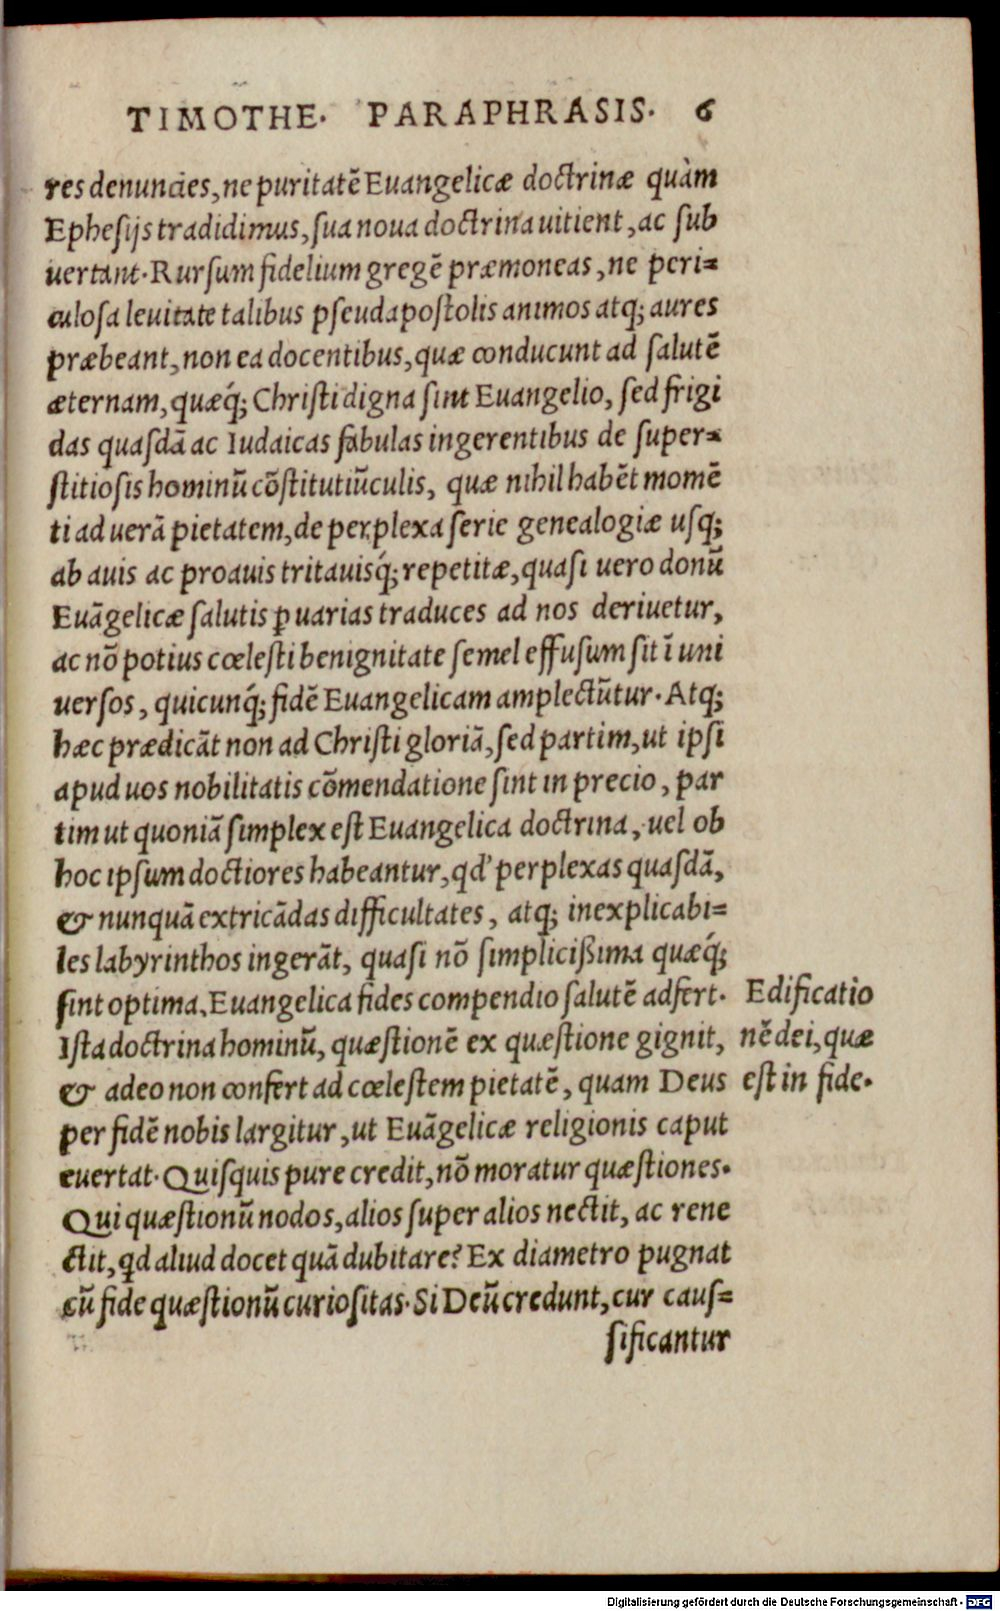 TIMOTHE. PARAPHRASIS. 6
res denuncies, ne puritatē Euangelicæ doctrinæ quàm
Ephesijs tradidimus, sua noua doctrina uitient, ac sub
uertant. Rursum fidelium gregē præmoneas, ne peri=
culosa leuitate talibus pseudapostolis animos atq; aures
præbeant, non ea docentibus, quæ conducunt ad salutē
æternam, quæq́; Christi digna sint Euangelio, sed frigi
das quasdā ac Iudaicas fabulas ingerentibus de super=
stitiosis hominū cōstitutiūculis, quæ nihil habēt momē
ti ad uerā pietatem, de perplexa serie genealogiæ usq;
ab auis ac proauis tritauisq́; repetitæ, quasi uero donū
Euāgelicæ salutis ꝑ uarias traduces ad nos deriuetur,
ac nō potius cœlesti benignitate semel effusum sit ī uni
uersos, quicunq́; fidē Euangelicam amplectūtur. Atq;
hæc prædicāt non ad Christi gloriā, sed partim, ut ipsi
apud uos nobilitatis cōmendatione sint in precio, par
tim ut quoniā simplex est Euangelica doctrina, uel ob
hoc ipsum doctiores habeantur, qd' perplexas quasdā,
& nunquā extricādas difficultates, atq; inexplicabi=
les labyrinthos ingerāt, quasi nō simplicißima quæq́;
sint optima. Euangelica fides compendio salutē adfert.
Ista doctrina hominū, quæstionē ex quæstione gignit,
& adeo non confert ad cœlestem pietatē, quam Deus
per fidē nobis largitur, ut Euāgelicæ religionis caput
euertat. Quisquis pure credit, nō moratur quæstiones.
Qui quæstionū nodos, alios super alios nectit, ac rene
ctit, qd aliud docet quā dubitare? Ex diametro pugnat
cū fide quæstionū curiositas. Si Deū credunt, cur caus=
sificantur
Edificatio
nē dei, quæ
est in fide.
Digitalisierung gefördert durch die Deutsche Forschungsgemeinschaft - DFG